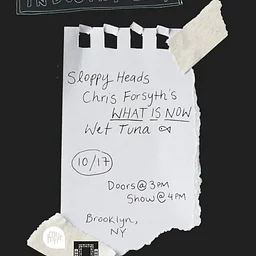 Sloppy Heads
Chris Forsyth's
WHAT IS NOW
Wet Tuna
10/17
Doors @ 3PM
Show @ 4PM
Brooklyn,
NY